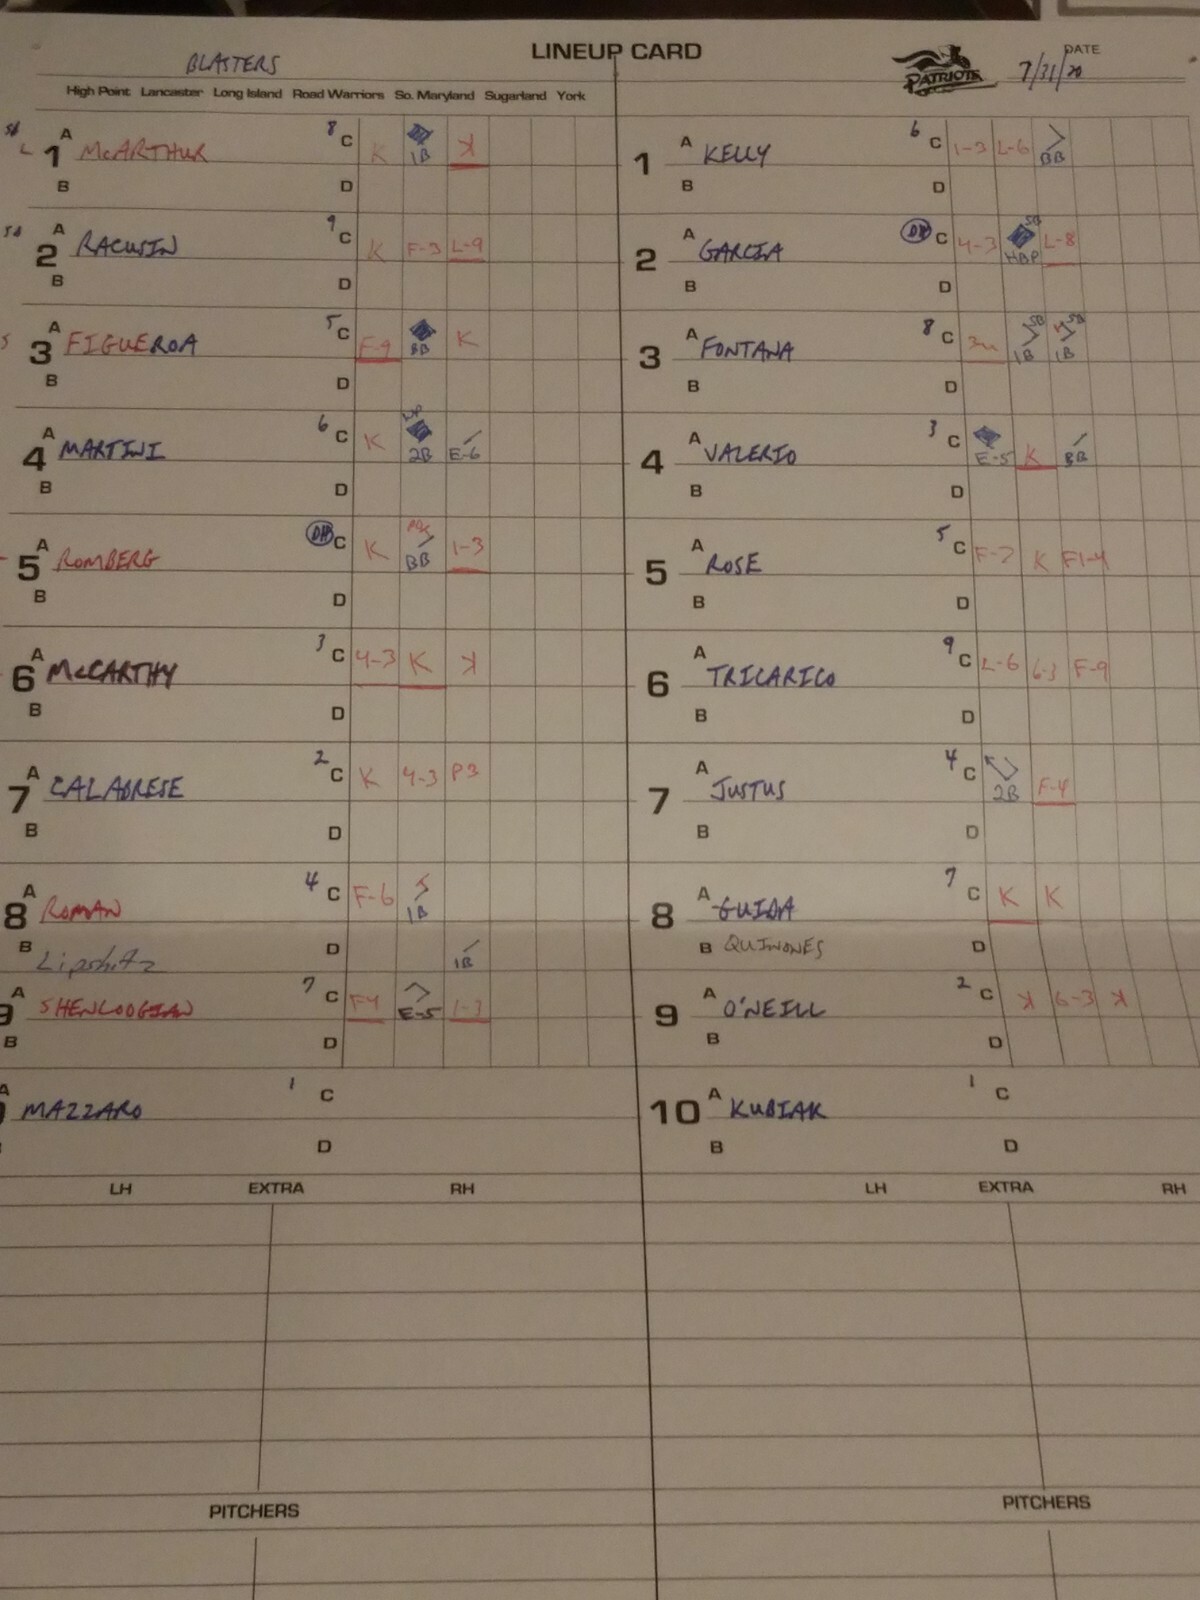 LINEUP CARD
BLASTERS
PATRIOTS
DATE
7/31/20
High Point Lancaster Long Island Road Warriors So. Maryland Sugarland York
L 1 A McARTHUR 8 C K 1B K
B D
2 A RACUSIN 9 C K F-3 L-9
B D
S 3 A FIGUEROA 5 C F-9 BB K
B D
4 A MARTINI 6 C K 2B E-6
B D
5 A ROMBERG DH C K BB 1-3
B D
6 A McCARTHY 3 C 4-3 K K
B D
7 A CALABRESE 2 C K 4-3 P3
B D
8 A ROMAN 4 C F-6 1B
B Lipshitz D 1B
9 A SHENLOOGIAN 7 C F4 E-5 1-3
B D
A MAZZARO 1 C
D
LH EXTRA RH
PITCHERS
1 A KELLY 6 C 1-3 L-6 BB
B D
2 A GARCIA DH C 4-3 SB HBP L-8
B D
3 A FONTANA 8 C 3u SB 1B SB 1B
B D
4 A VALERIO 3 C E-5 K BB
B D
5 A ROSE 5 C F-7 K F1-4
B D
6 A TRICARICO 9 C L-6 6-3 F-9
B D
7 A JUSTUS 4 C 2B F-4
B D
8 A GUIDA 7 C K K
B QUINONES D
9 A O'NEILL 2 C K 6-3 K
B D
10 A KUBIAK 1 C
B D
LH EXTRA RH
PITCHERS